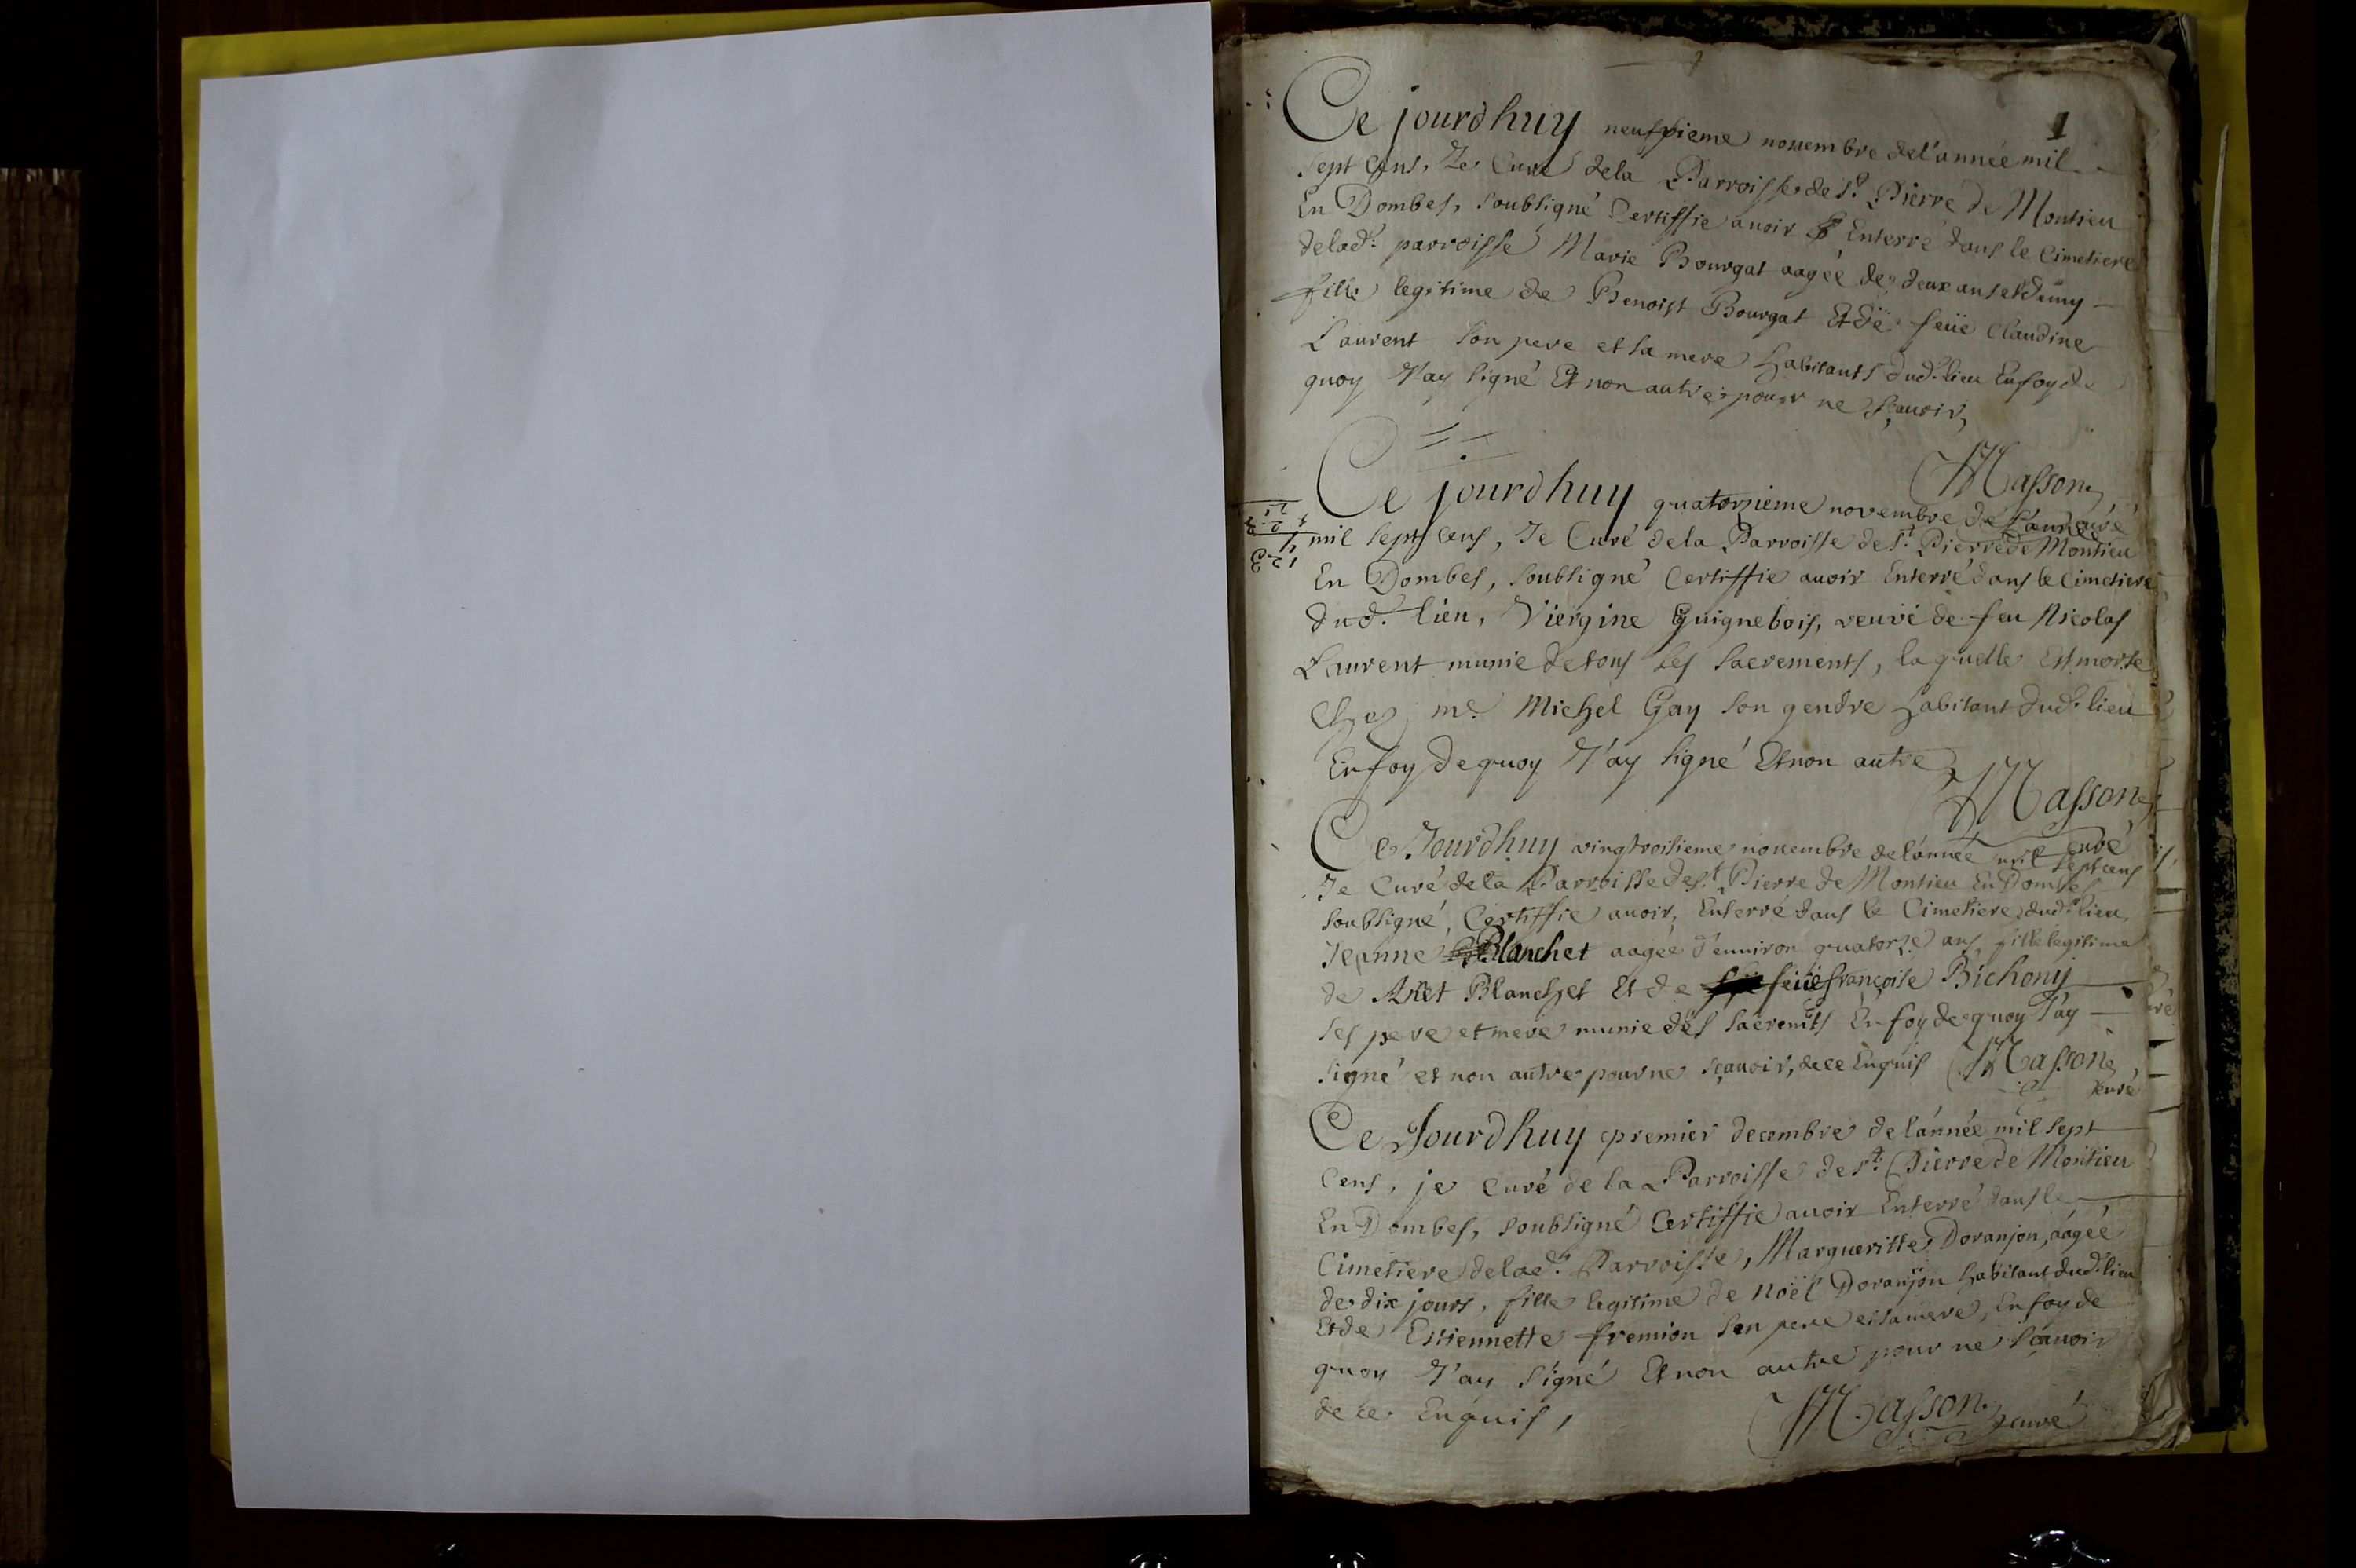 1
Ce jourdhuy neufvieme novembre de l'année mil
sept cens, Je Curé de la Parroisse de St. Pierre de Montieu
En Dombes, soubsigné Certiffie avoir Enterré dans le Cimetiere
de lad. parroisse Marie Bourgat aagée de deux ans et demy
fille legitime de Benoist Bourgat Et de feüe Claudine
Laurent son pere et sa mere habitants dud. lieu En foy de
quoy J'ay signé Et non autre pour ne sçavoir,
Masson
curé
Ce jourdhuy quatorzieme novembre de l'année
mil sept cens, Je Curé de la Parroisse de St. Pierre de Montieu
En Dombes, soubsigné Certiffie avoir Enterré dans le Cimetiere
dud. lieu, Viergine Guignebois, veuve de feu Nicolas
Laurent munie de tous les sacrements, laquelle Est morte
Chez me. Michel Gay son gendre habitant dud. lieu
En foy de quoy J'ay signé Et non autre
Masson
curé
Ce Jourdhuy vingtroisieme novembre de l'année mil sept cens
Je Curé de la Parroisse de St. Pierre de Montieu En Dombes
soubsigné, Certiffie avoir, Enterré dans le Cimetiere dud. lieu
Jeanne Blanchet aagée d'environ quatorze ans fille legitime
de Blanchet Et de feüe françoise Bichony
ses pere et mere munie des sacremts En foy de quoy J'ay
signé et non autre pour ne sçavoir, de ce Enquis Masson
curé
Ce Jourdhuy premier decembre de l'année mil sept
Cens, je Curé de la Parroisse de St. Pierre de Montieu
En Dombes, soubsigné Certiffie avoir Enterré dans le
Cimetiere de lad. Parroisse, Margueritte Doranjon, aagée
de dix jours, fille legitime de Noël Doranjon habitant dud. lieu
Et de Estiennette fremion son pere et sa mere, En foy de
quoy J'ay signé Et non autre pour ne sçavoir
de ce Enquis,
Masson curé